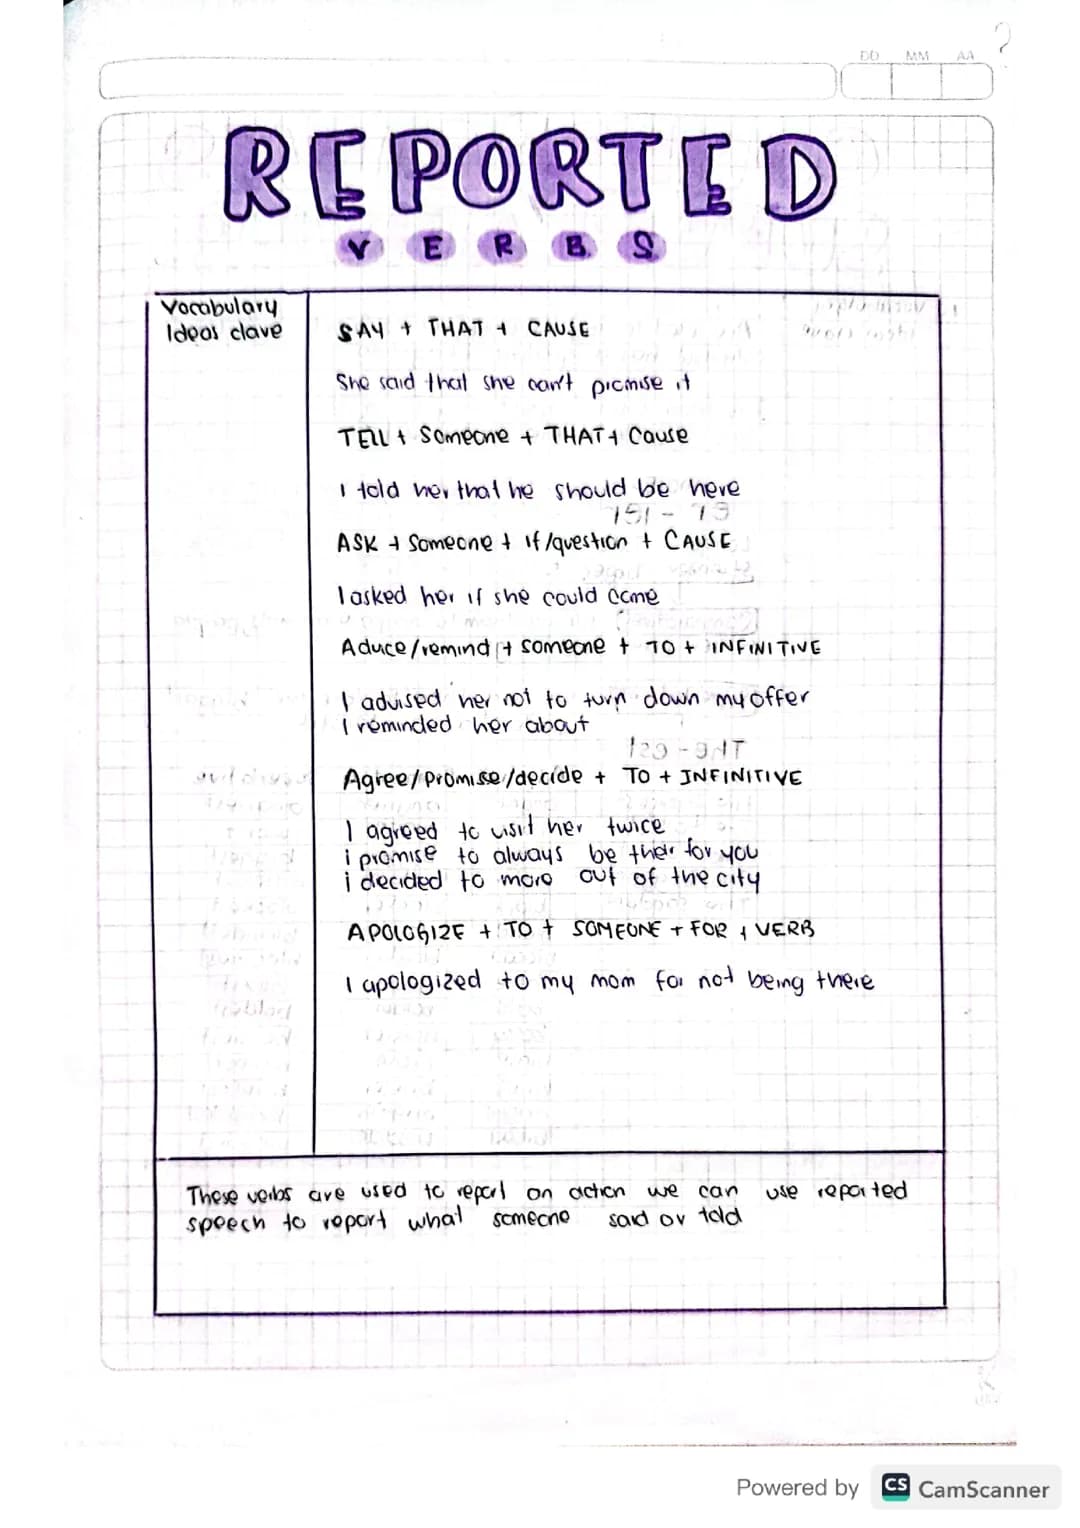 DD MM AA
REPORTED
VERBS
Vocabulary
Ideas clave
SAY + THAT + CAUSE
She said that she can't promise it
TELL + Someone + THAT + Cause
I told her that he should be here
ASK + Someone + if/question + CAUSE
I asked her if she could come
Aduce/remind + someone + TO + INFINITIVE
I advised her not to turn down my offer
I reminded her about
Agree/Promise/decide + TO + INFINITIVE
I agreed to visit her twice
i promise to always be their for you
i decided to move out of the city
APOLOGIZE + TO + SOMEONE + FOR + VERB
I apologized to my mom for not being there
These verbs are used to report an action we can use reported
speech to report what someone said or told
Powered by CS CamScanner